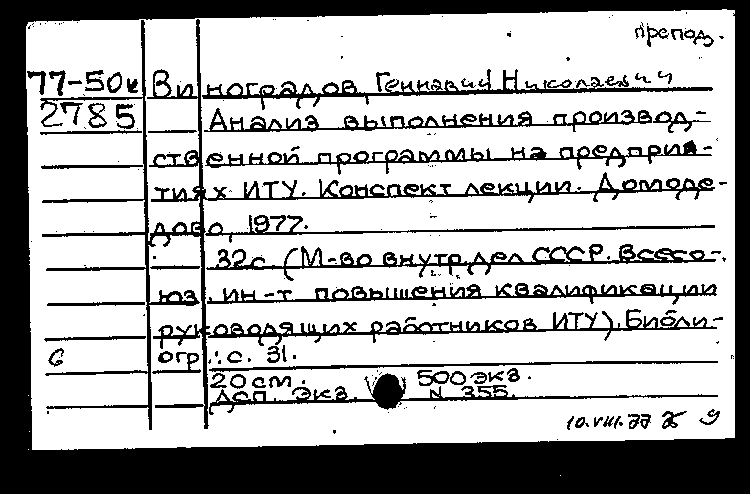 препод.
77-50к Виноградов, Геннадий Николаевич
2785 Анализ выполнения производ-
ственной программы на предприя-
тиях ИТУ. Конспект лекции. Домоде-
дово, 1977.
32с. (М-во внутр. дел СССР. Всесо-
юз. ин-т повышения квалификации
руководящих работников ИТУ). Библи-
огр.: с. 31.
20 см. 500 экз.
ДСП. Экз. N 355.
10.VIII.77